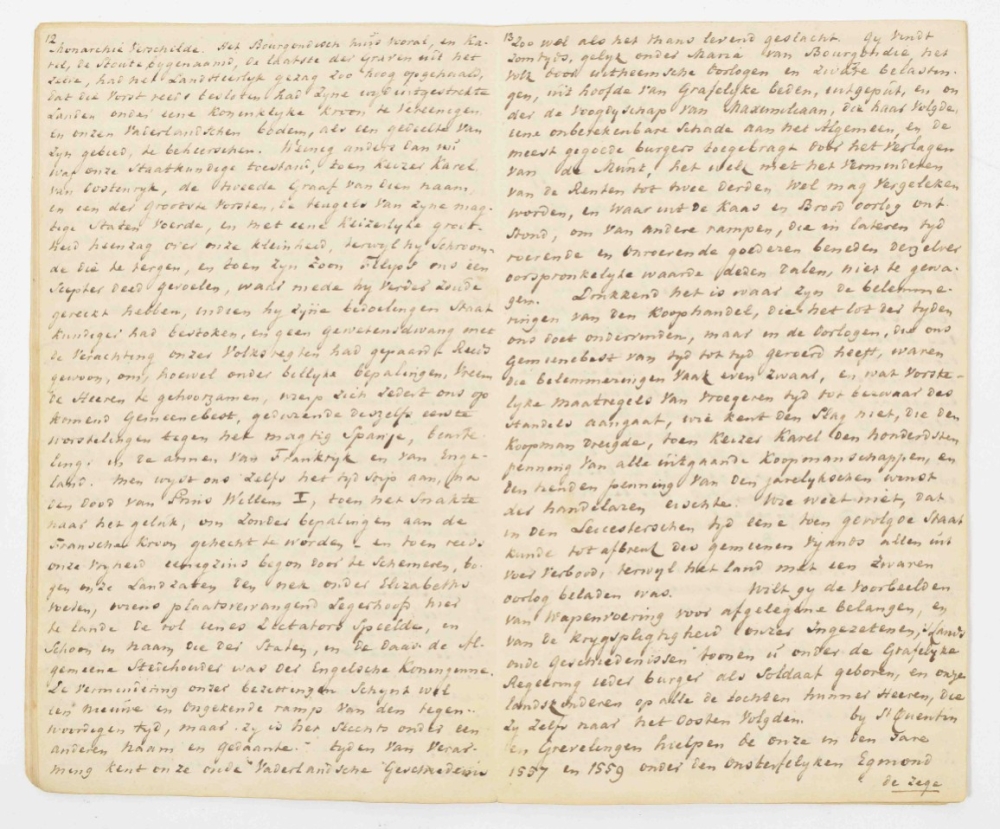 12
Monarchie verschilde. Het Bourgondisch huijs vooral, en Ka-
rel, de Stoute bygenaamd, de laatste der Graven uit het
zelve, had het Landsheerlyk gezag zoo hoog opgehaald,
dat die Vorst reeds besloten had zyne wyduitgestrekte
Landen onder eene Koninklyke Kroon te vereenigen
en onzen Vaderlandschen bodem, als een gedeelte van
zyn gebied, te beheerschen. Weineg anders dan nu
was onze Staatkundige toestand, toen Keizer Karel
van Oostenryk, de tweede Graaf van dien naam,
en een der grootste Vorsten, de teugels van zyne mag-
tige Staten voerde, en met eene Keizerlyke groot-
heid heenzag over onze kleinheid, terwyl hy schroom-
de die te tergen, en toen zyn zoon Filips ons een
Scepter deed gevoelen, waar mede hy verder zoude
gereikt hebben, indien hy zyne bedoelingen Staat
kundiger had bestoken, en geen gewetensdwang met
de verachting onzer Volksregten had gepaard. Reeds
gewoon, om, hoewel onder billyke bepalingen, vreem
de Heeren te gehoorzamen, wierp zich zedert ons op
komend Gemeenebest, gedurende deszelfs eerste
worstelingen tegen het magtig Spanje, beurte
lings in de armen van Frankryk en van Enge-
land. Men wyst ons zelfs het tydstip aan, na
den dood van Prins Willem I, toen het snakte
naar het geluk, om zonder bepalingen aan de
Fransche Kroon gehecht te worden - en toen reeds
onze Vryheid eenigzins begon door te schemeren, bo-
gen onze Landzaten den nek onder Elizabeths
voeten, wiens plaatsvervangend Legerhoofd hier
te lande de rol eenes Dictators speelde, en
schoon in naam die der Staten, in de daar de Al-
gemeene Stedehouder was der Engelsche Koninginne.
De vermindering onzer bezittingen schynt wel
een nieuwe en ongekende ramp van den tegen-
woordigen tyd, maar zy is het slechts onder een
anderen naam en gedaante. tyden van verar-
ming kent onze oude Vaderlandsche Geschiedenis
13 Zoo wel als het thans levend geslacht. Gy vindt
somtyds, gelyk onder Maria van Bourgondie, het
volk door uitheemsche Oorlogen en zware belastin-
gen, uit hoofde van Grafelyke beden, uitgeput, en on
der de Voogdyschap van Maximiliaan, die haar volgde,
eene onberekenbare schade aan het Algemeen, en de
meest gegoede burgers toegebragt door het verlagen
van de Munt, het welk met het verminderen
van de Renten tot twee derden wel mag vergeleken
worden, en waar uit de Kaas en Brood oorlog ont-
stond, om van andere rampen, die in lateren tyd
roerende en onroerende goederen beneden derzelver
oorspronkelyke waarde deden dalen, niet te gewa-
gen. Drukkend het is waar zyn de belemme-
ringen van den Koophandel, die het lot der tyden
ons doet ondervinden, maar in de Oorlogen, die ons
Gemeenebest van tyd tot tyd gevoerd heeft, waren
die belemmeringen vaak even zwaar, en wat vorste-
lyke maatregels van vroegeren tyd tot bezwaar des
handels aangaat, wie kent den slag niet, die den
Koopman dreigde, toen Keizer Karel den honderdsten
penning van alle uitgaande Koopmanschappen, en
den tienden penning van den jaarlykschen winst
der handelaren eischte. Wie weet niet, dat
in den Leicesterschen tyd eene toen gevolgde Staat
kunde tot afbreuk des gemeenen vyands allen uit
voer verbood, terwyl het land met een zwaren
oorlog beladen was. Wilt gy de voorbeelden
van Wapenvoering voor afgelegene belangen, en
van de Krygspligtigheid onzer Ingezetenen, 's Lands
oude Geschiedenissen toonen u onder de Grafelyke
Regeering ieder burger als Soldaat geboren, en onze
landskinderen op alle de tochten hunner Heeren, die
zy zelfs naar het Oosten volgden. by St Quentin
en Grevelingen hielpen de onze in den Jare
1557 en 1559 onder den onsterfelyken Egmond
de zege